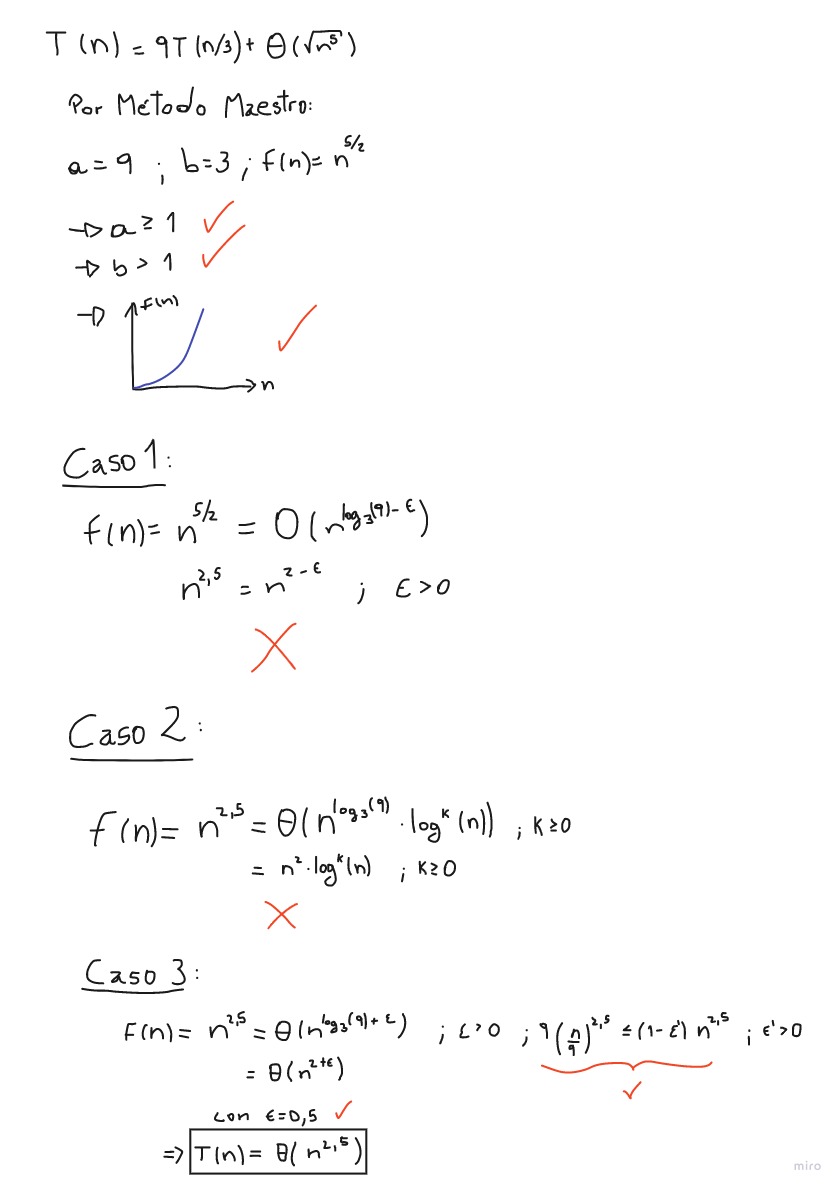 T(n) = 9T(n/3) + Θ(√n⁵)
Por Método Maestro:
a = 9 ; b=3 ; f(n)= n^5/2
→ a ≥ 1 ✓
→ b > 1 ✓
→ f(n) ✓
n
Caso 1:
f(n)= n^5/2 = O(n^log₃(9)-ε)
n^2,5 = n^2-ε ; ε>0
X
Caso 2:
f(n)= n^2,5 = Θ(n^log₃(9) · log^k(n)) ; k≥0
= n² · log^k(n) ; k≥0
X
Caso 3:
F(n)= n^2,5 = Θ(n^log₃(9)+ε) ; ε>0 ; 9(n/9)^2,5 ≤ (1-ε') n^2,5 ; ε'>0
= Θ(n^2+ε) ✓
con ε=0,5 ✓
⇒ T(n)= Θ(n^2,5)
miro